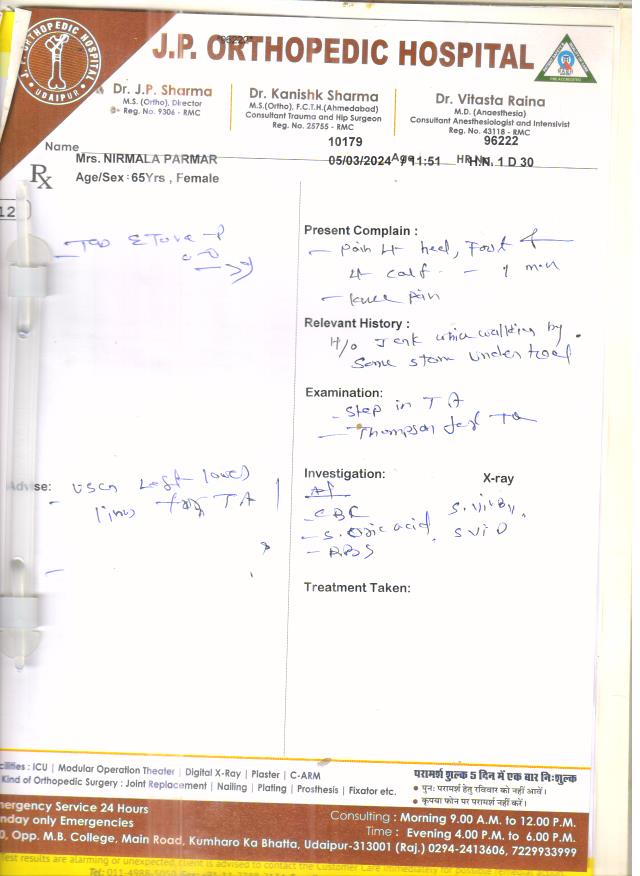 J.P. ORTHOPEDIC HOSPITAL
J.P. ORTHOPEDIC HOSPITAL
UDAIPUR
Dr. J.P. Sharma
M.S. (Ortho), Director
Reg. No. 9306 - RMC
Dr. Kanishk Sharma
M.S.(Ortho), F.C.T.H.(Ahmedabad)
Consultant Trauma and Hip Surgeon
Reg. No. 25755 - RMC
Dr. Vitasta Raina
M.D. (Anaesthesia)
Consultant Anesthesiologist and Intensivist
Reg. No. 43118 - RMC
10179
96222
Name
Mrs. NIRMALA PARMAR
05/03/2024 11:51
H.N. 1 D 30
Rx
Age/Sex : 65Yrs , Female
12
Present Complain :
- Pain heel, Foot
calf
- knee pain
Relevant History :
H/o Jerk walking by
some stone under road
Examination:
- Step in TA
- Thompson test
Advise:
USG Left lower
limb for TA
Investigation:
X-ray
- CBC
- S. Uric acid
S. Vit B12
S Vit D
- RBS
Treatment Taken:
cilities : ICU | Modular Operation Theater | Digital X-Ray | Plaster | C-ARM
Kind of Orthopedic Surgery : Joint Replacement | Nailing | Plating | Prosthesis | Fixator etc.
परामर्श शुल्क 5 दिन में एक बार निःशुल्क
• पुनः परामर्श हेतु रविवार को नहीं आवें।
• कृपया फोन पर परामर्श नहीं करें।
mergency Service 24 Hours
nday only Emergencies
Consulting : Morning 9.00 A.M. to 12.00 P.M.
Time : Evening 4.00 P.M. to 6.00 P.M.
0, Opp. M.B. College, Main Road, Kumharo Ka Bhatta, Udaipur-313001 (Raj.) 0294-2413606, 7229933999
Test results are alarming or unexpected, client is advised to contact the Customer Care immediately for possible remedial action.